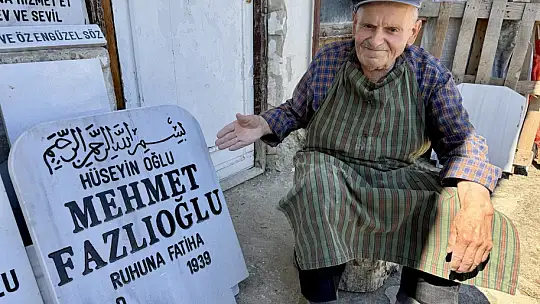 ET
EV VE SEVİL
VE ÖZ EN GÜZEL SÖZ
بسم الله الرحمن الرحيم
HÜSEYİN OĞLU
MEHMET
FAZLIOĞLU
RUHUNA FATİHA
1939